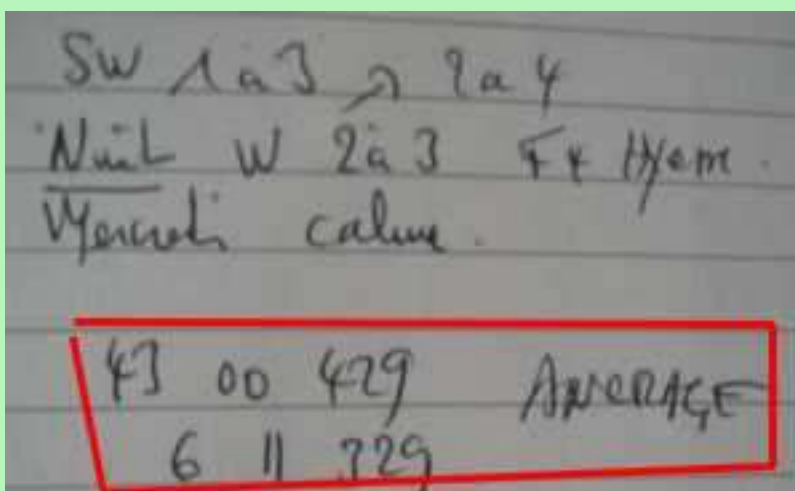 SW 1 à 3 ↗ 2 a 4
Nuit W 2 à 3 Fx Hyem.
Mercredi calme.
43 00 429 ANCRAGE
6 11 329